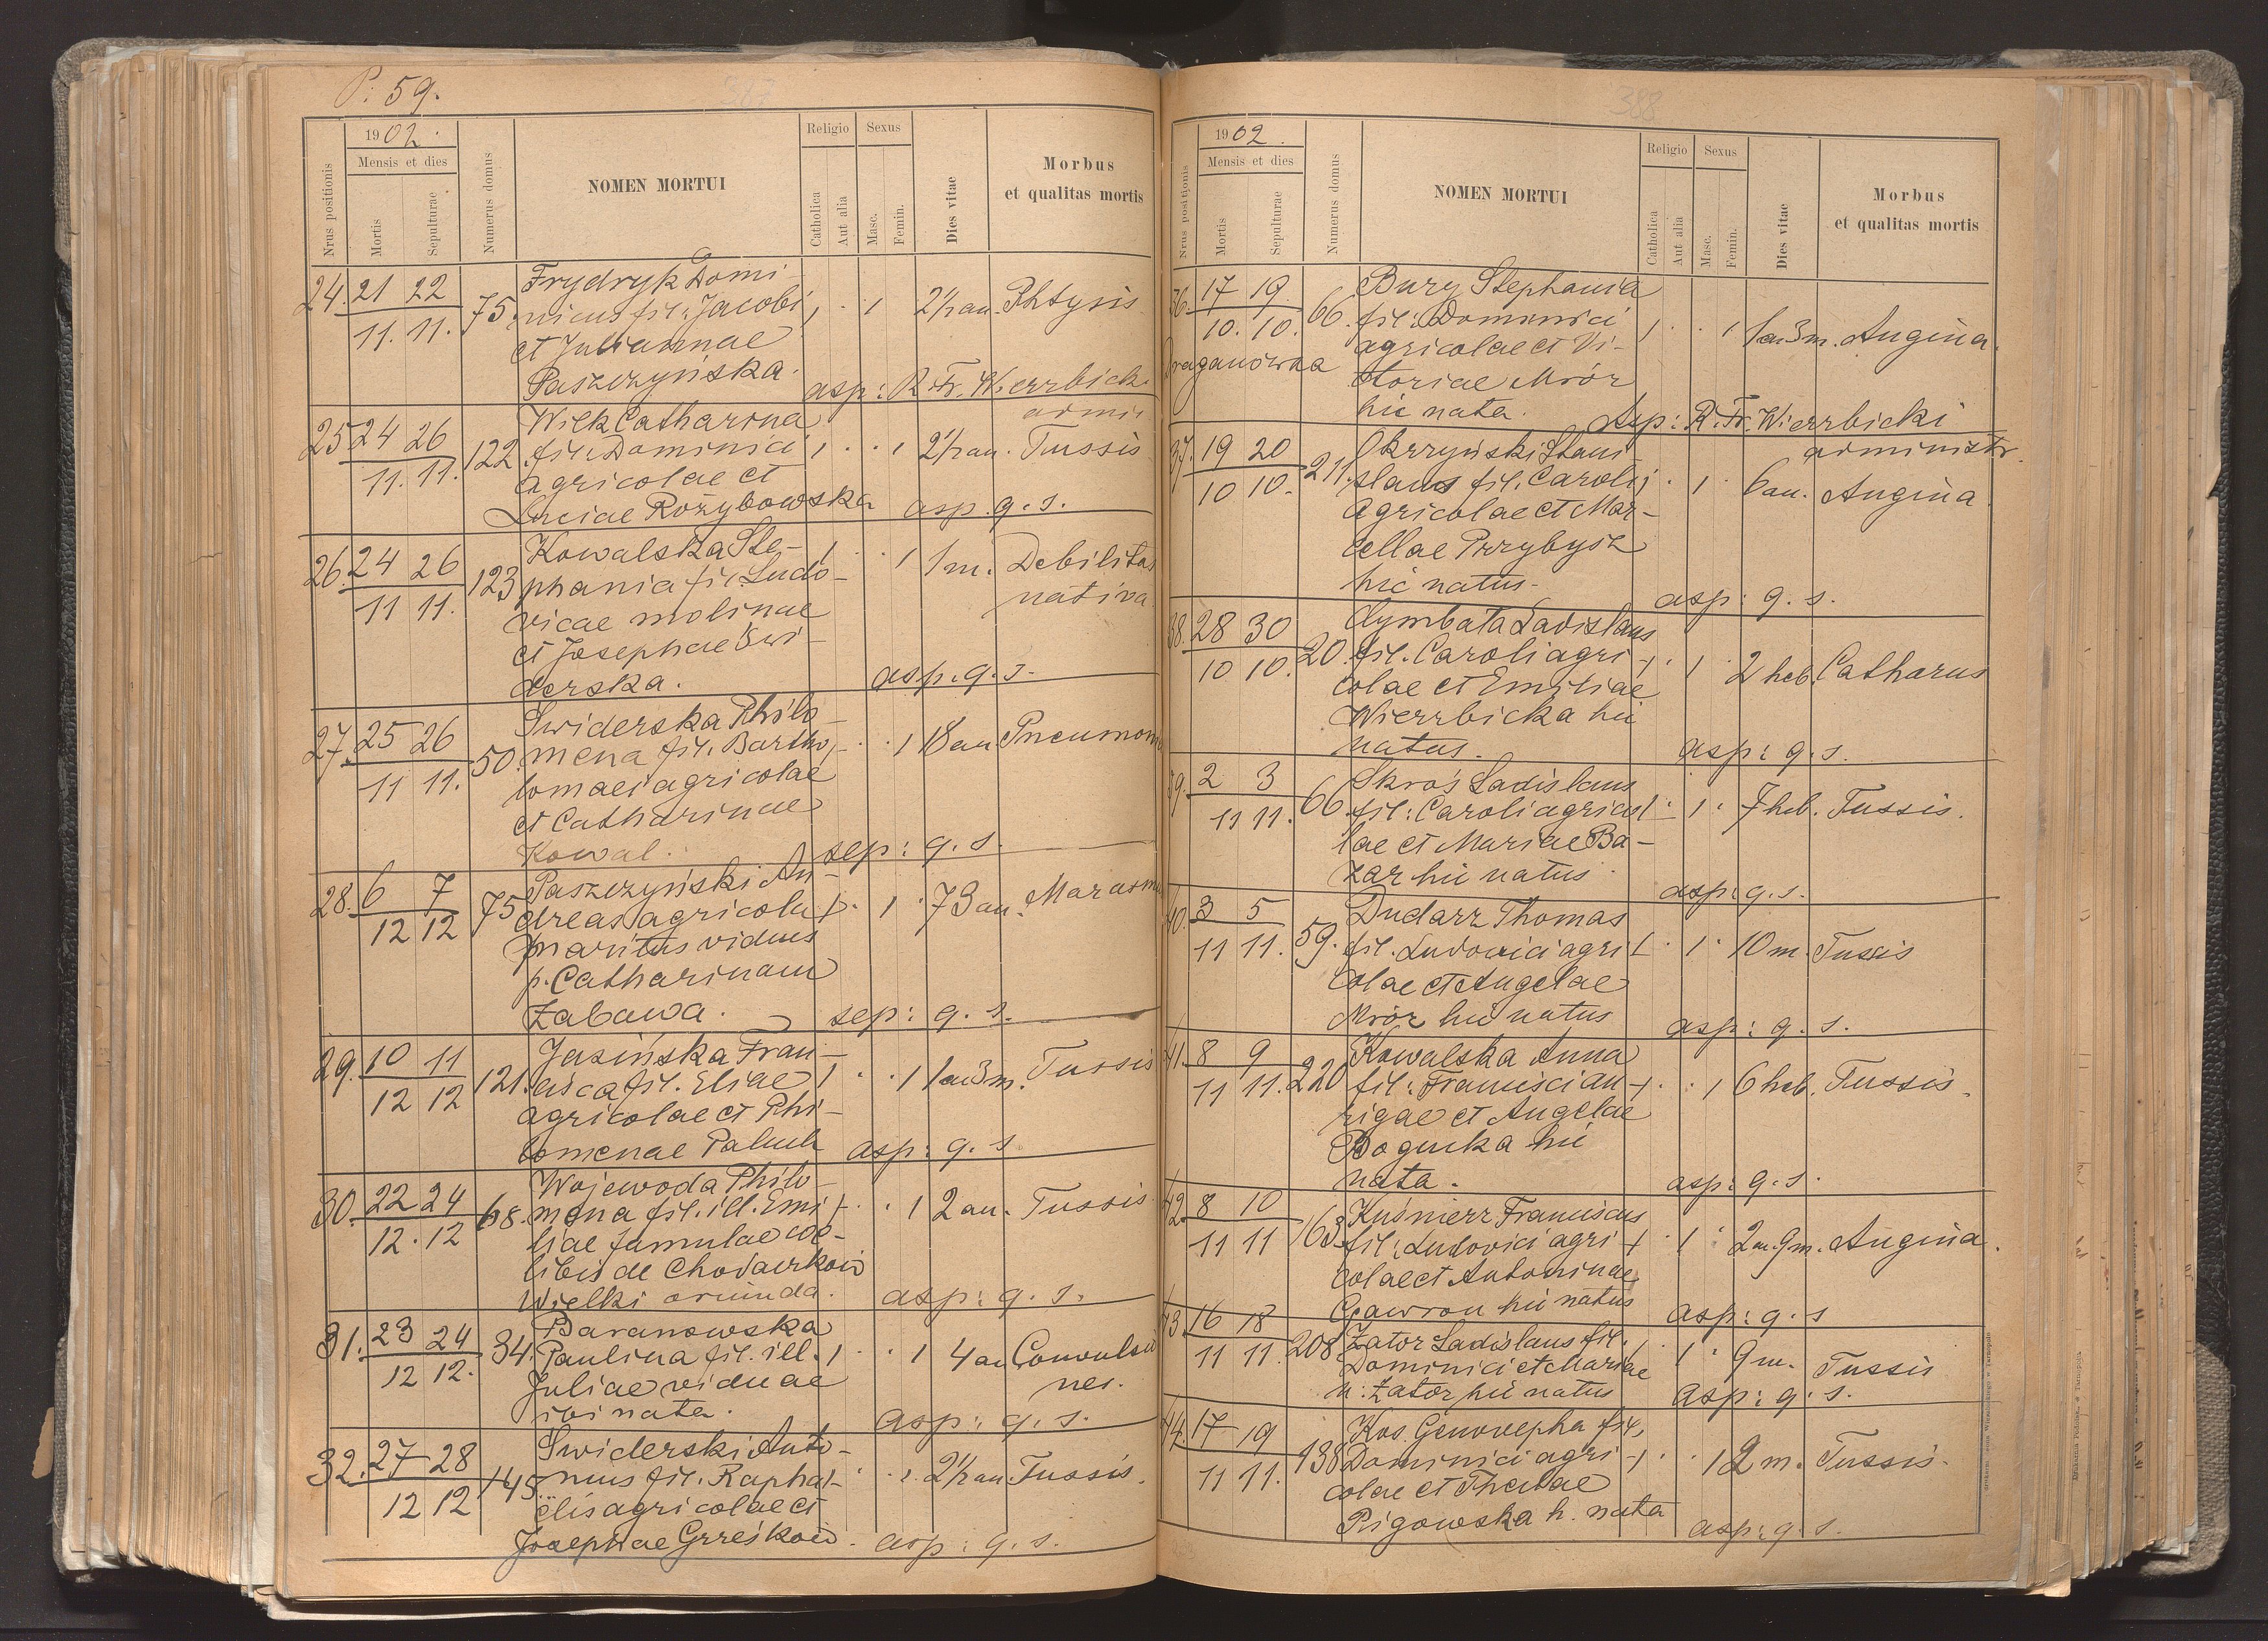 P. 59.
1902.
Nrus positionis
Mensis et dies
Mortis
Sepulturae
Numerus domus
NOMEN MORTUI
Religio
Catholica
Aut alia
Sexus
Masc.
Femin.
Dies vitae
Morbus
et qualitas mortis
24. 21 22
11. 11. 75.
Frydryk Domi-
nicus fil: Jacobi 1 . 1 2½ an. Phtysis
et Juliannae
Paszczyńska.
asp: R. Fr. Wierzbicki
admin
25 24 26
11. 11. 122
Wilk Catharina
fil. Dominici 1 . . 1 2½ an. Tussis
agricolae et
Luciae Rożybowska asp. q. s.
26. 24 26
11 11. 123
Kowalska Ste-
phania fil. Ludo- 1 . . 1 1 m. Debilitas
vicae molinae nativa
et Josephae Świ-
derska. asp. q. s.
27. 25 26
11 11. 50.
Swiderska Philo-
mena fil. Bartho- 1 . . 1 18 an Pneumoni
lomaei agricolae
et Catharinae
Kowal. sep: q. s.
28. 6 7
12 12 75
Paszczyński An-
dreas agricola 1 . 1 . 73 an. Marasmu
maritus viduus
p. Catharinam
Zabawa. sep: q. s.
29. 10 11
12 12 121.
Jasińska Fran-
cisca fil. Eliae 1 . . 1 1 an 3 m. Tussis
agricolae et Phi-
lomenae Paluch asp: q. s
30. 22 24
12. 12 68.
Wojewoda Philo-
mena fil. ill. Emi- 1 . . 1 2 an. Tussis
liae famulae coe-
libis de Chodaczków
Wielki oriunda. asp: q. s.
31. 23 24
12 12. 34.
Baranowska
Paulina fil. ill. 1 . . 1 4 an Convulsio
Juliae viduae nes.
ibi nata. asp: q. s.
32. 27 28
12 12 145.
Swiderski Anto-
nius fil. Rapha- 1 . . 1. 2½ an. Tussis.
elis agricolae et
Josephae Grześków. asp: q. s.
388
1902.
Nrus positionis
Mensis et dies
Mortis
Sepulturae
Numerus domus
NOMEN MORTUI
Religio
Catholica
Aut alia
Sexus
Masc.
Femin.
Dies vitae
Morbus
et qualitas mortis
36. 17 19
10. 10. 66.
Draganówka
Bury Stephania
fil: Dominici 1 . . 1 1 an 3 m. Angina.
agricolae et Vi-
ctoriae Mróz
hic nata. Asp: R. Fr. Wierzbicki
administr.
37. 19 20
10 10. 211.
Okrzyński Stani-
slaus fil. Caroli 1 . 1 . 6 an. Angina
agricolae et Mar-
cellae Przybysz
hic natus. asp: q. s.
38. 28 30
10 10. 20.
Cymbała Ladislaus
fil. Caroli agri- 1 . 1 . 2 heb. Catharus
colae et Emiliae
Wierzbicka hic
natus. asp: q. s.
39. 2 3
11 11. 66.
Skroś Ladislaus
fil: Caroli agrico- 1 . 1 . 7 heb. Tussis.
lae et Mariae Ba-
zar hic natus. asp: q. s.
40. 3 5
11 11. 59.
Dudarz Thomas
fil. Ludovici agri- 1 . 1 . 10 m. Tussis
colae et Angelae
Mróz hic natus asp: q. s.
41. 8 9
11 11. 220
Kowalska Anna
fil: Francisci au- 1 . . 1 6 heb. Tussis.
rigae et Angelae
Bogucka hic
nata. asp: q. s.
42. 8 10
11 11 163
Kuśnierz Franciscus
fil: Ludovici agri- 1 . 1 . 2 an. 9 m. Angina.
colae et Antoninae
Gawron hic natus asp: q. s
43. 16 18
11 11. 208
Zator Ladislaus fil.
Dominici et Mariae 1 . 1 . 9 m. Tussis
n: Zator hic natus asp: q. s.
44. 17 19
11 11. 138
Kos Genovepha fil.
Dominici agri- 1 . . 1 2 m. Tussis.
colae et Theclae
Rigowska h. nata asp: q. s.